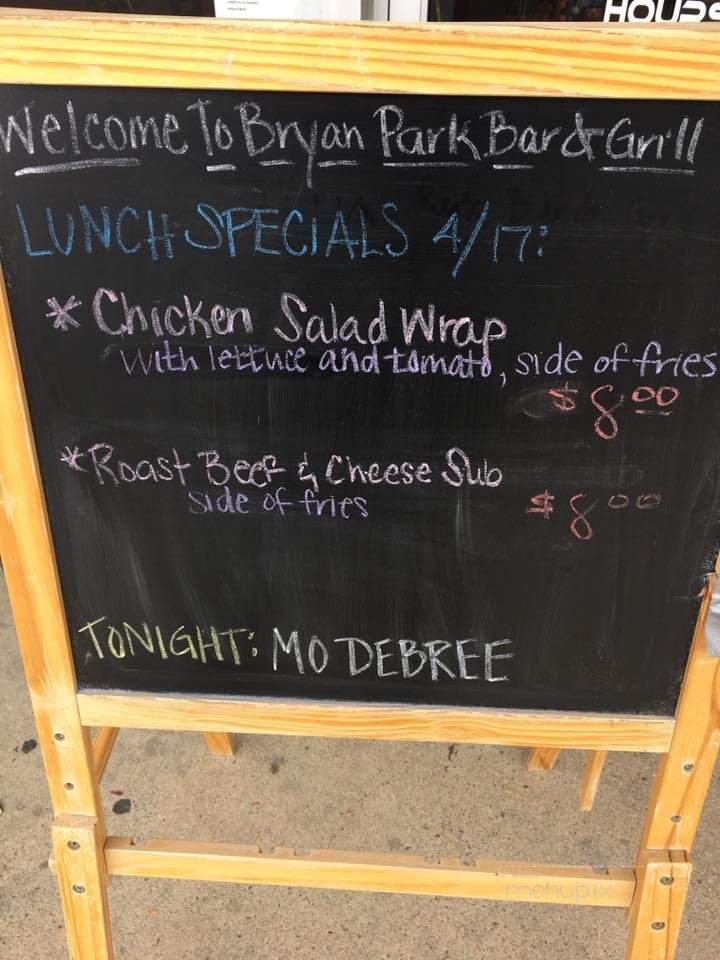 HOURS
Welcome To Bryan Park Bar & Grill
LUNCH SPECIALS 4/17:
* Chicken Salad Wrap
with lettuce and tomato, side of fries
$8.00
* Roast Beef & Cheese Sub
side of fries $8.00
TONIGHT: MO DEBREE
menupix